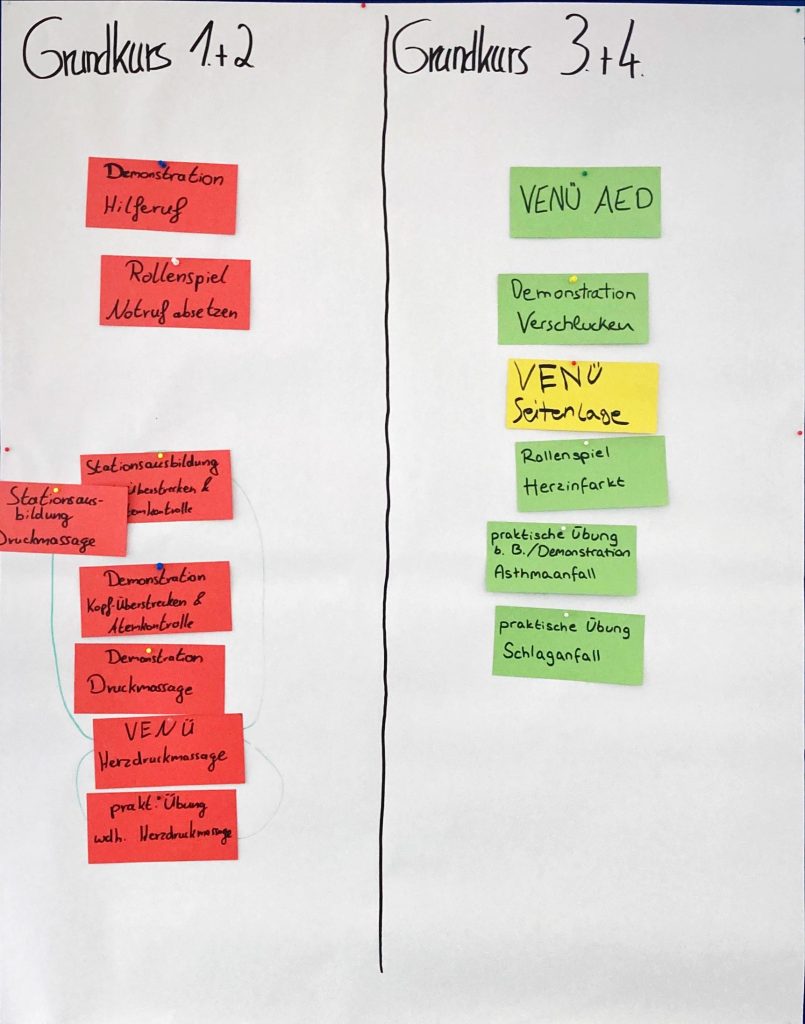 Grundkurs 1.+2
Demonstration
Hilferuf
Rollenspiel
Notruf absetzen
Stationsausbildung
überstrecken &
temkontrolle
Stationsaus-
bildung
Druckmassage
Demonstration
Kopf-Überstrecken &
Atemkontrolle
Demonstration
Druckmassage
VENÜ
Herzdruckmassage
prakt. Übung
wdh. Herzdruckmassage
Grundkurs 3.+4.
VENÜ AED
Demonstration
Verschlucken
VENÜ
Seitenlage
Rollenspiel
Herzinfarkt
praktische Übung
b. B./Demonstration
Asthmaanfall
praktische Übung
Schlaganfall